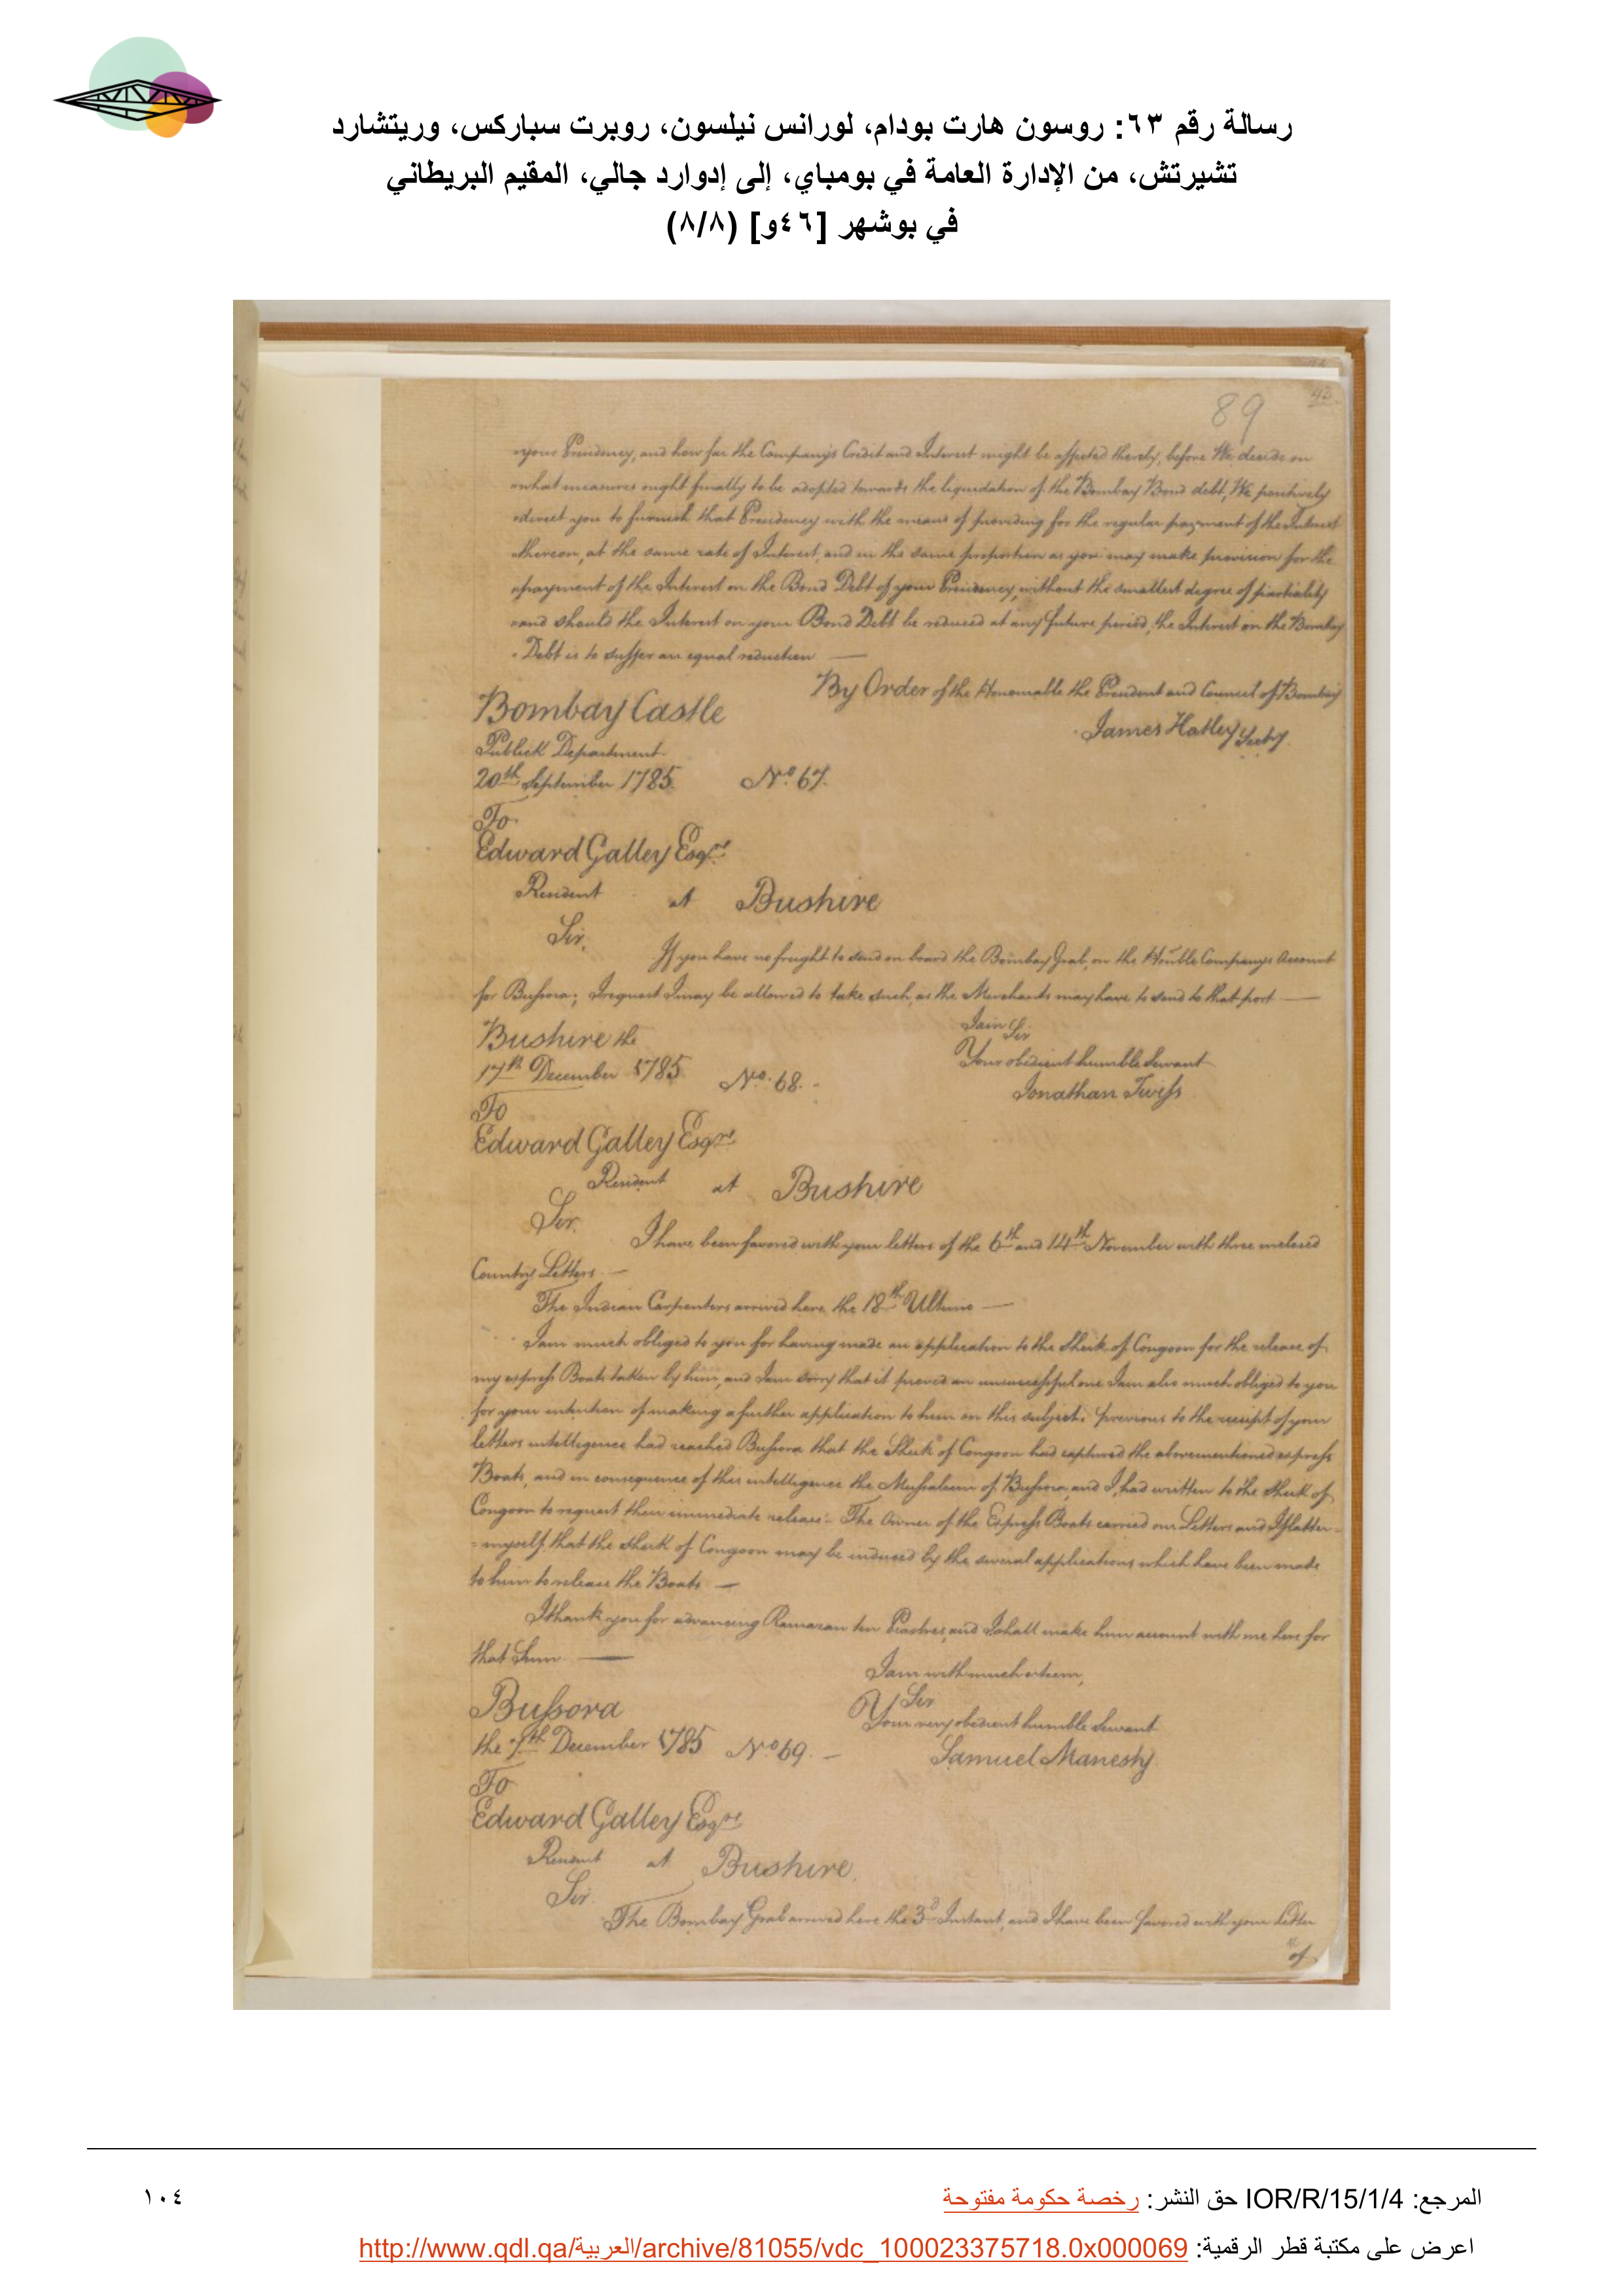 رسالة رقم ٦٣: روسون هارت بودام، لورانس نيلسون، روبرت سباركس، وريتشارد
تشيرتش، من الإدارة العامة في بومباي، إلى إدوارد جالي، المقيم البريطاني
في بوشهر [٤٦و] (٨/٨)
89
your Presidency, and how far the Company's Credit and Interest might be affected thereby, before We decide on
what measures ought finally to be adopted towards the liquidation of the Bombay Bond debt, We positively
direct you to furnish that Presidency with the means of providing for the regular payment of the Interest
thereon, at the same rate of Interest, and in the same proportion as you may make provision for the
payment of the Interest on the Bond Debt of your Presidency, without the smallest degree of partiality
and should the Interest on your Bond Debt be reduced at any future period, the Interest on the Bombay
Debt is to suffer an equal reduction —
By Order of the Honourable the President and Council of Bombay
Bombay Castle
James Hatley Secty
Publick Department
20th September 1785. No. 67.
To
Edward Galley Esqre
Resident at Bushire
Sir,
If you have no freight to send on board the Bombay Grab, on the Honble Companys Account
for Bussora; I request I may be allowed to take such, as the Merchants may have to send to that port —
I am Sir
Bushire the
Your obedient humble Servant
17th December 1785 No. 68. -
Jonathan Twiss
To
Edward Galley Esqre
Resident at Bushire
Sir.
I have been favored with your letters of the 6th and 14th November with three inclosed
Country Letters. —
The Indian Carpenters arrived here the 18th Ultimo —
I am much obliged to you for having made an application to the Sheik of Congoon for the release of
my express Boats taken by him, and I am sorry that it proved an unsuccessful one I am also much obliged to you
for your intention of making a further application to him on this subject. previous to the receipt of your
letters intelligence had reached Bussora that the Sheik of Congoon had captured the abovementioned express
Boats, and in consequence of this intelligence the Mussaleem of Bussora, and I, had written to the Sheik of
Congoon to request their immediate release. The Owner of the Express Boats carried our Letters and I flatter
= myself that the Sheik of Congoon may be induced by the several applications which have been made
to him to release the Boats —
I thank you for advancing Ramazan ten Piastres, and I shall make him account with me here for
that Sum. —
I am with much esteem,
Sir
Bussora
Your very obedient humble Servant
the 7th December 1785 No 69. -
Samuel Manesty
To
Edward Galley Esqre
Resident at Bushire.
Sir.
The Bombay Grab arrived here the 3d Instant, and I have been favored with your Letter
of
المرجع: IOR/R/15/1/4 حق النشر: رخصة حكومة مفتوحة
١٠٤
اعرض على مكتبة قطر الرقمية: http://www.qdl.qa/العربية/archive/81055/vdc_100023375718.0x000069